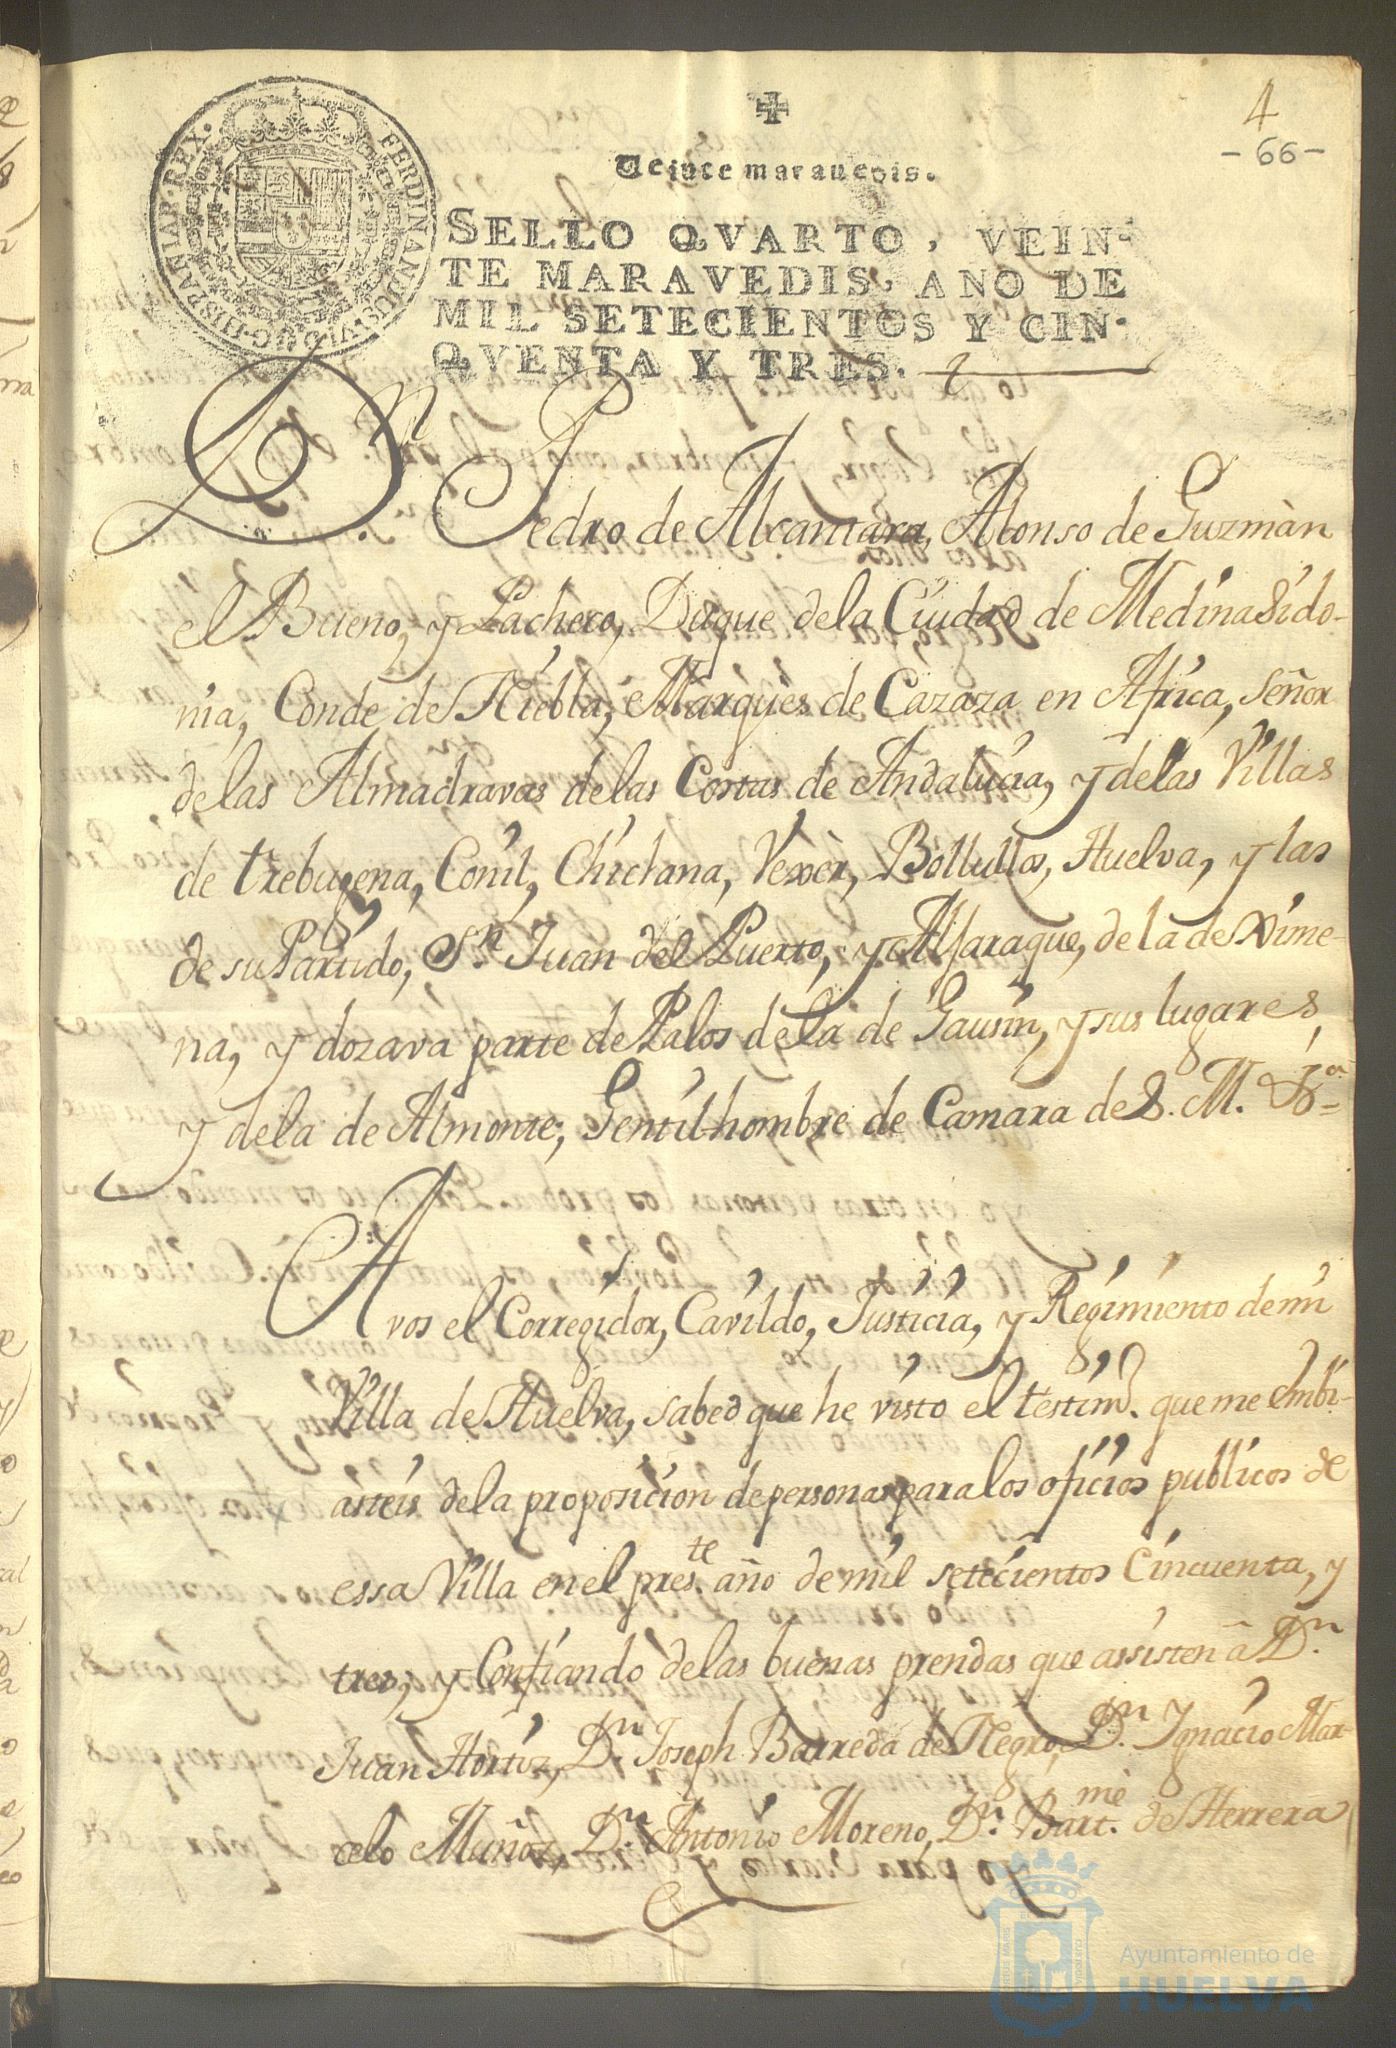 4
- 66 -
Veinte maravedis.
SELLO QVARTO, VEIN-
TE MARAVEDIS, AÑO DE
MIL SETECIENTOS Y CIN-
QVENTA Y TRES.
FERDINANDUS·VI·D·G·HISPANIAR·REX·
Dn. Pedro de Alcantara, Alonso de Guzmàn
el Bueno, y Pacheco, Duque dela Ciudad de Medina Sido-
nia, Conde de Niebla, Marquès de Cazaza en Africa, Señor
delas Almadravas delas Costas de Andalucia, y delas Villas
de trebugena, Conil, Chiclana, Vexèr, Bollullos, Huelva, y las
de su Partido, Sn. Juan del Puerto, y Alfaraque, de la de Xime-
na, y dozava parte de Palos de la de Gausin, y sus lugares,
y dela de Almonte, Gentilhombre de Camara de S. M. &a.
A vos el Corregidor, Cavildo, Justicia, y Regimiento de mi
Villa de Huelva, sabed que he visto el testimo. que me embi-
asteis dela proposicion de personas para los oficios publicos de
essa Villa en el preste. año de mil setecientos Cincuenta, y
tres, y Confiando delas buenas prendas que assisten â Dn.
Juan Hortiz, Dn. Joseph Barreda de Negro, Dn. Ygnacio Mar-
celo Muñoz, Dn. Antonio Moreno, Dn. Bartme. de Herrera
Ayuntamiento de
HUELVA